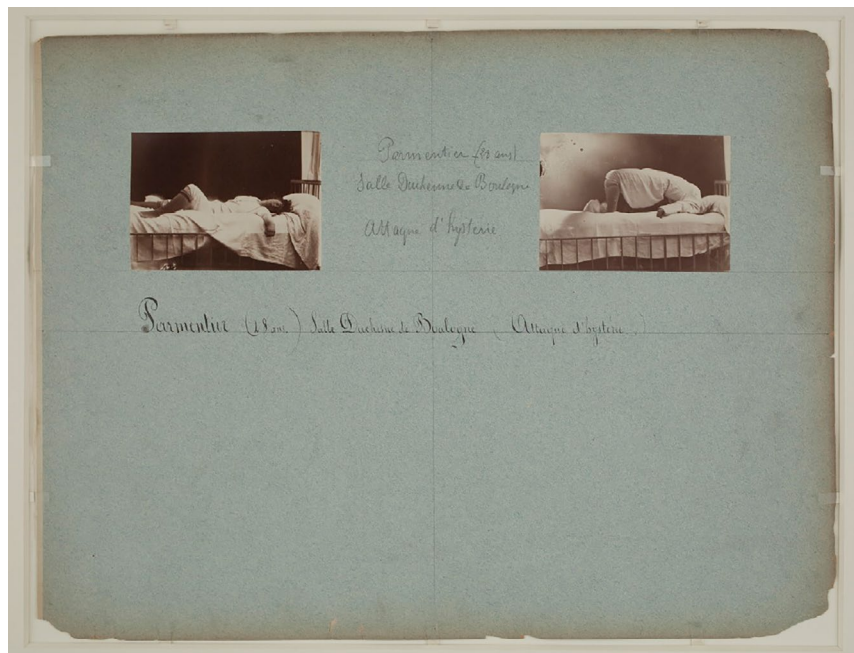 Parmentier (18 ans)
Salle Duchenne de Boulogne
Attaque d'hystérie
Parmentier (18 ans) Salle Duchesne de Boulogne (Attaque d'hystérie.)